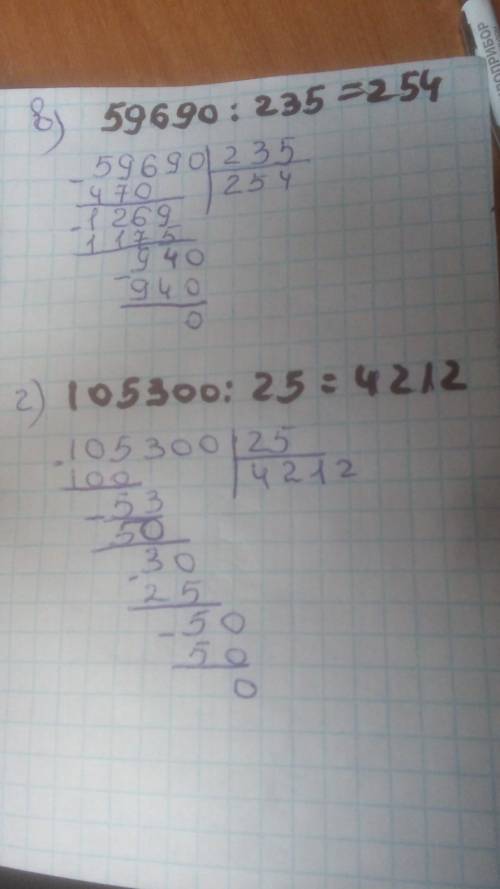 ПРИБОР
в) 59690 : 235 = 254
- 59690 | 235
470 | 254
- 1269
1175
- 940
940
0
г) 105300 : 25 = 4212
- 105300 | 25
100 | 4212
- 53
50
- 30
25
- 50
50
0